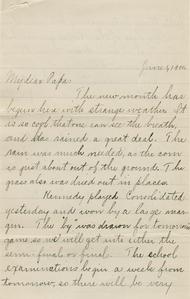 June 5, 19
My dear Papa:
The new month has
begun here with strange weather. It
is so cool that one can see the breath,
and has rained a great deal. The
rain was much needed, as the corn
is just about out of the ground. The
grass also was dried out in places.
Kennedy played Consolidated
yesterday and won by a large mar-
gin. The by was drawn for tomorrow's
game so we will get into either the
semi-final or final. The school
examinations begin a week from
tomorrow, so there will be very